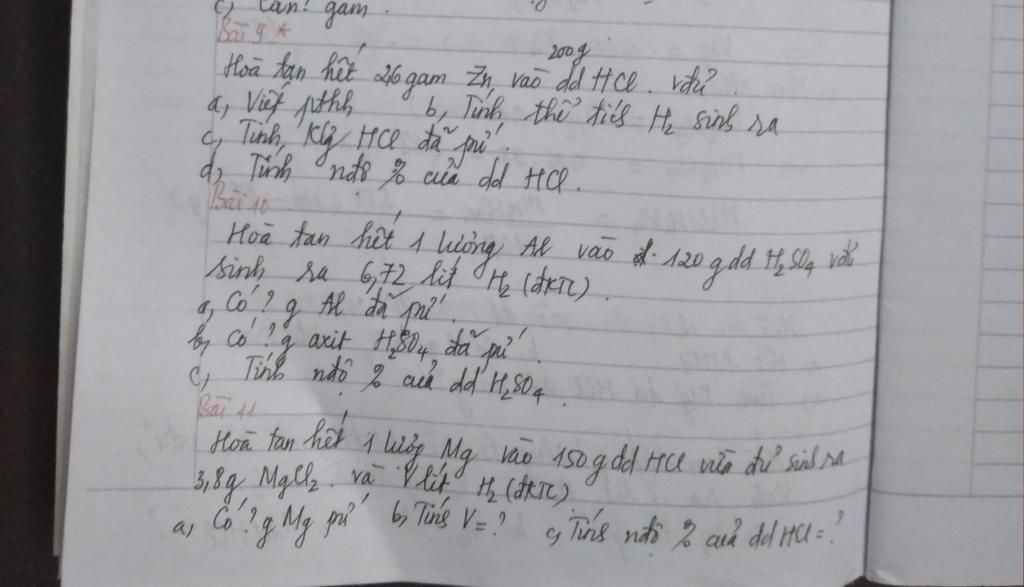 c, Cần? gam.
Bài 9 *
200g
Hoà tan hết 2,6 gam Zn vào dd HCl. vđủ.
a, Viết pthh b, Tính thể tích H2 sinh ra
c, Tính Klg HCl đã pứ.
d, Tính nđộ % của dd HCl.
Bài 10
Hoà tan hết 1 lượng Al vào 120 g dd H2SO4 vđủ
sinh ra 6,72 lít H2 (đktc).
a, Có ? g Al đã pứ.
b, Có ? g axit H2SO4 đã pứ.
c, Tính nđộ % của dd H2SO4.
Bài 11
Hoà tan hết 1 lượng Mg vào 150 g dd HCl vừa đủ sinh ra
3,8g MgCl2. và V lít H2 (đktc)
a, Có ? g Mg pứ b, Tính V = ? c, Tính nđộ % của dd HCl = ?